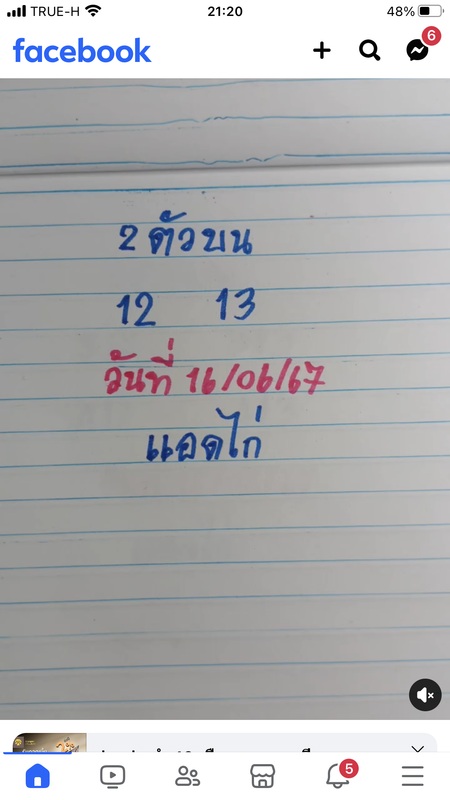 TRUE-H 21:20 48%
facebook
6
2 ตัวบน
12 13
วันที่ 16/06/67
แอดไก่
5